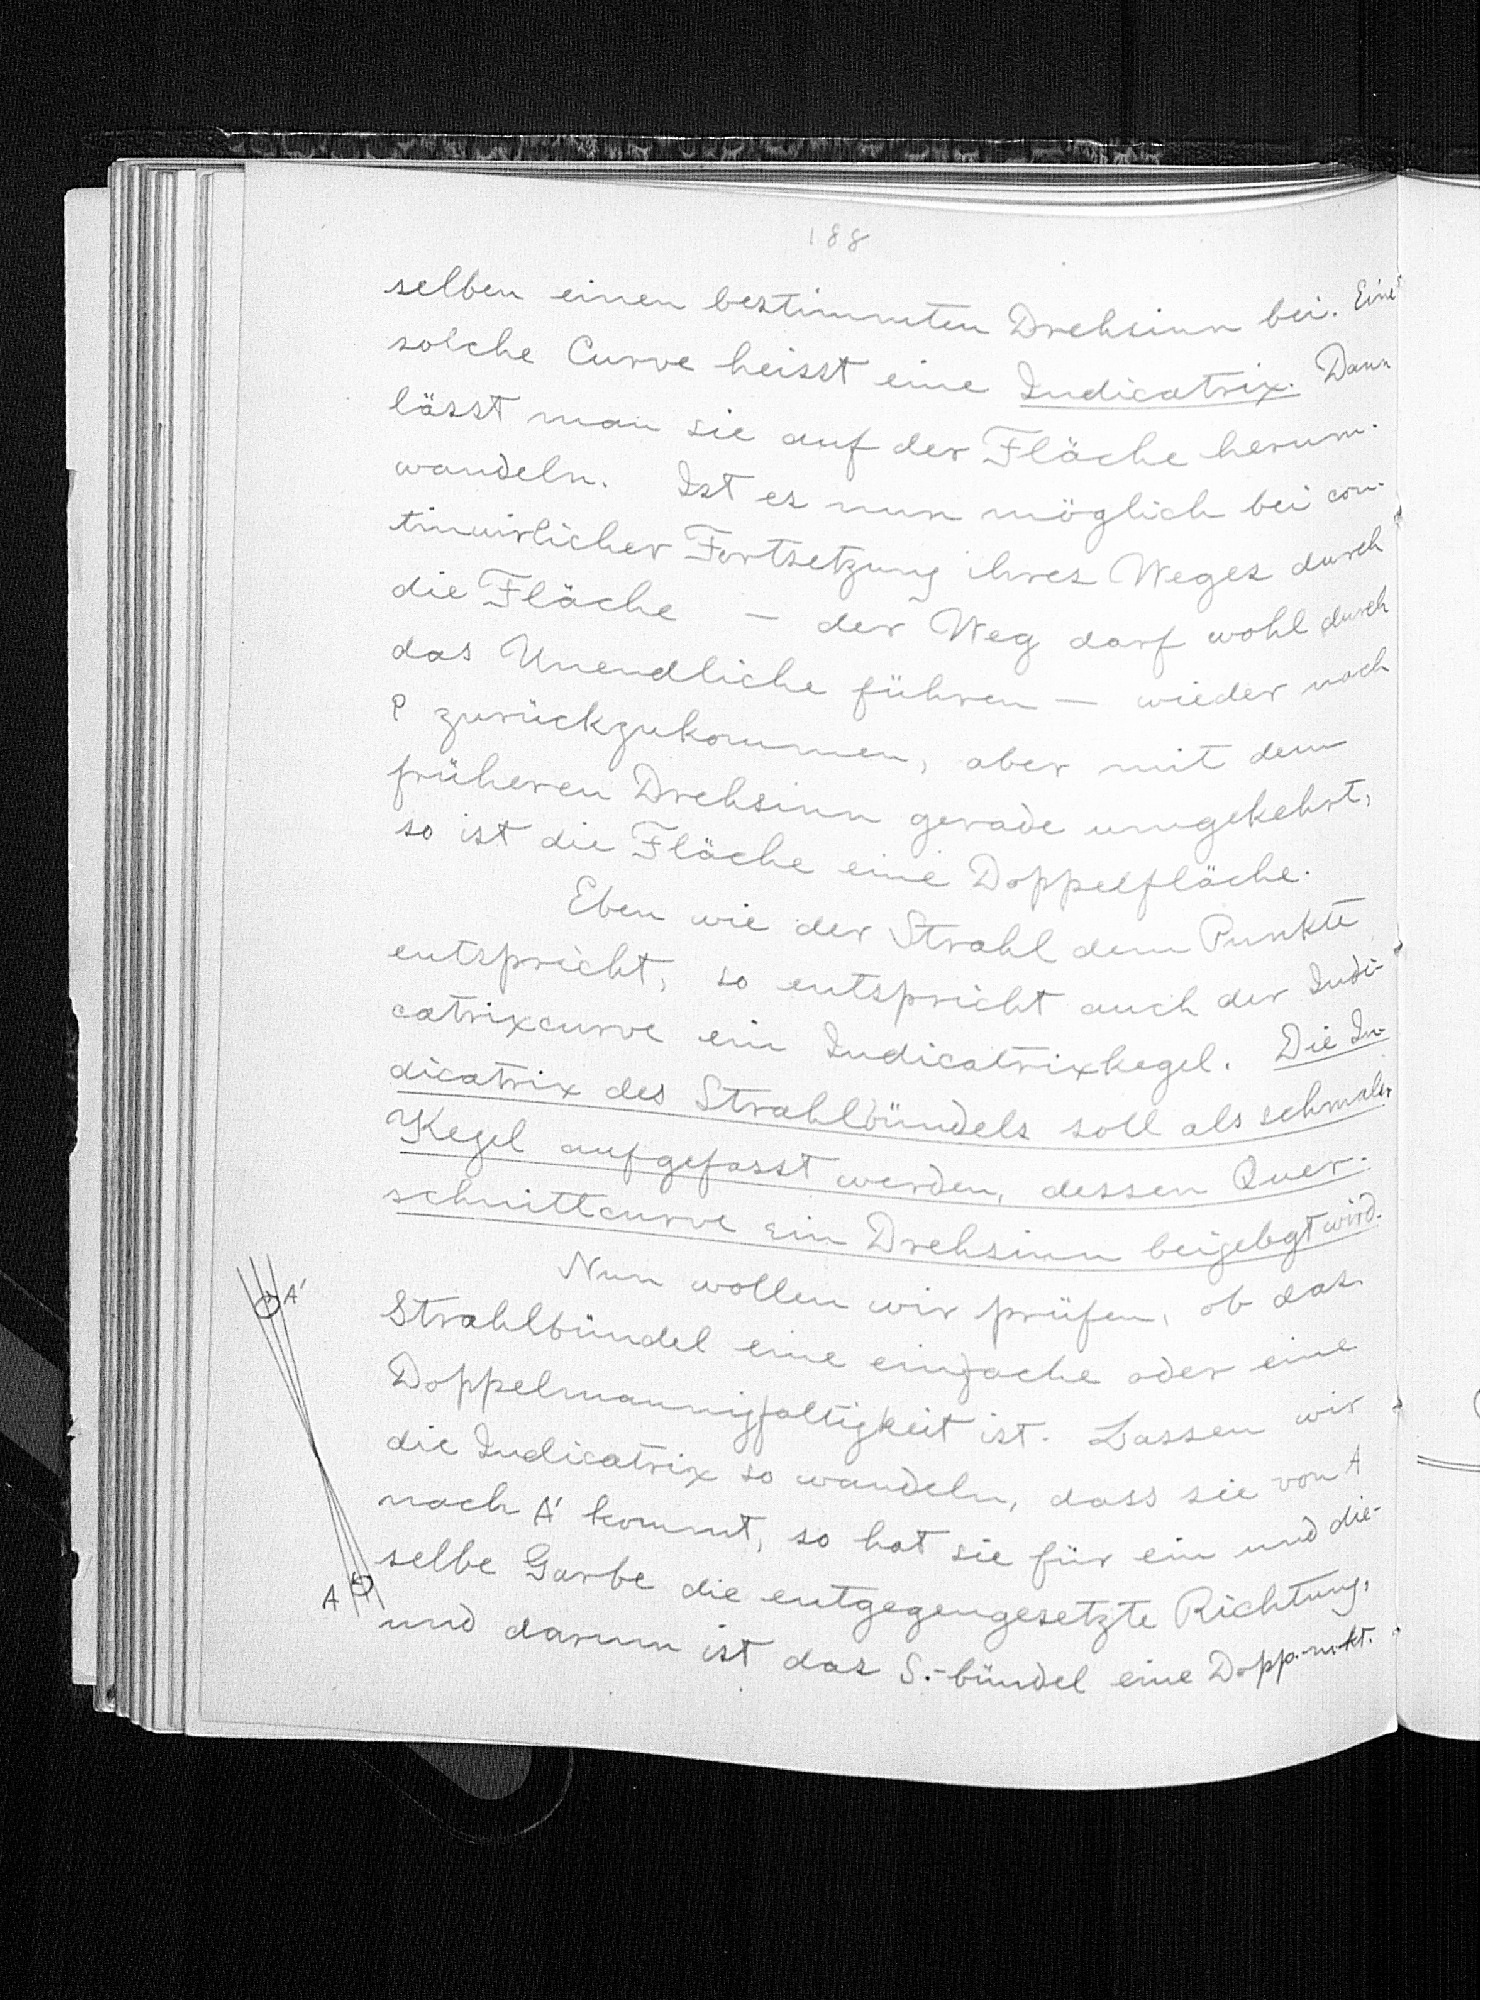 188
selben einen bestimmten Drehsinn bei. Eine
solche Curve heisst eine Indicatrix. Dann
lässt man sie auf der Fläche herum-
wandeln. Ist es nun möglich bei con-
tinuirlicher Fortsetzung ihres Weges durch
die Fläche — der Weg darf wohl durch
das Unendliche führen — wieder nach
P zurückzukommen, aber mit dem
früheren Drehsinn gerade umgekehrt,
so ist die Fläche eine Doppelfläche.
Eben wie der Strahl dem Punkte
entspricht, so entspricht auch der Indi-
catrixcurve ein Indicatrixkegel. Die In-
dicatrix des Strahlbündels soll als schmaler
Kegel aufgefasst werden, dessen Quer-
schnittcurve ein Drehsinn beigelegt wird.
Nun wollen wir prüfen, ob das
Strahlbündel eine einfache oder eine
Doppelmannigfaltigkeit ist. Lassen wir
die Indicatrix so wandeln, dass sie von A
nach A' kommt, so hat sie für ein und die-
selbe Garbe die entgegengesetzte Richtung,
und darum ist das S.-bündel eine Dopp.-m-kt.
A'
A